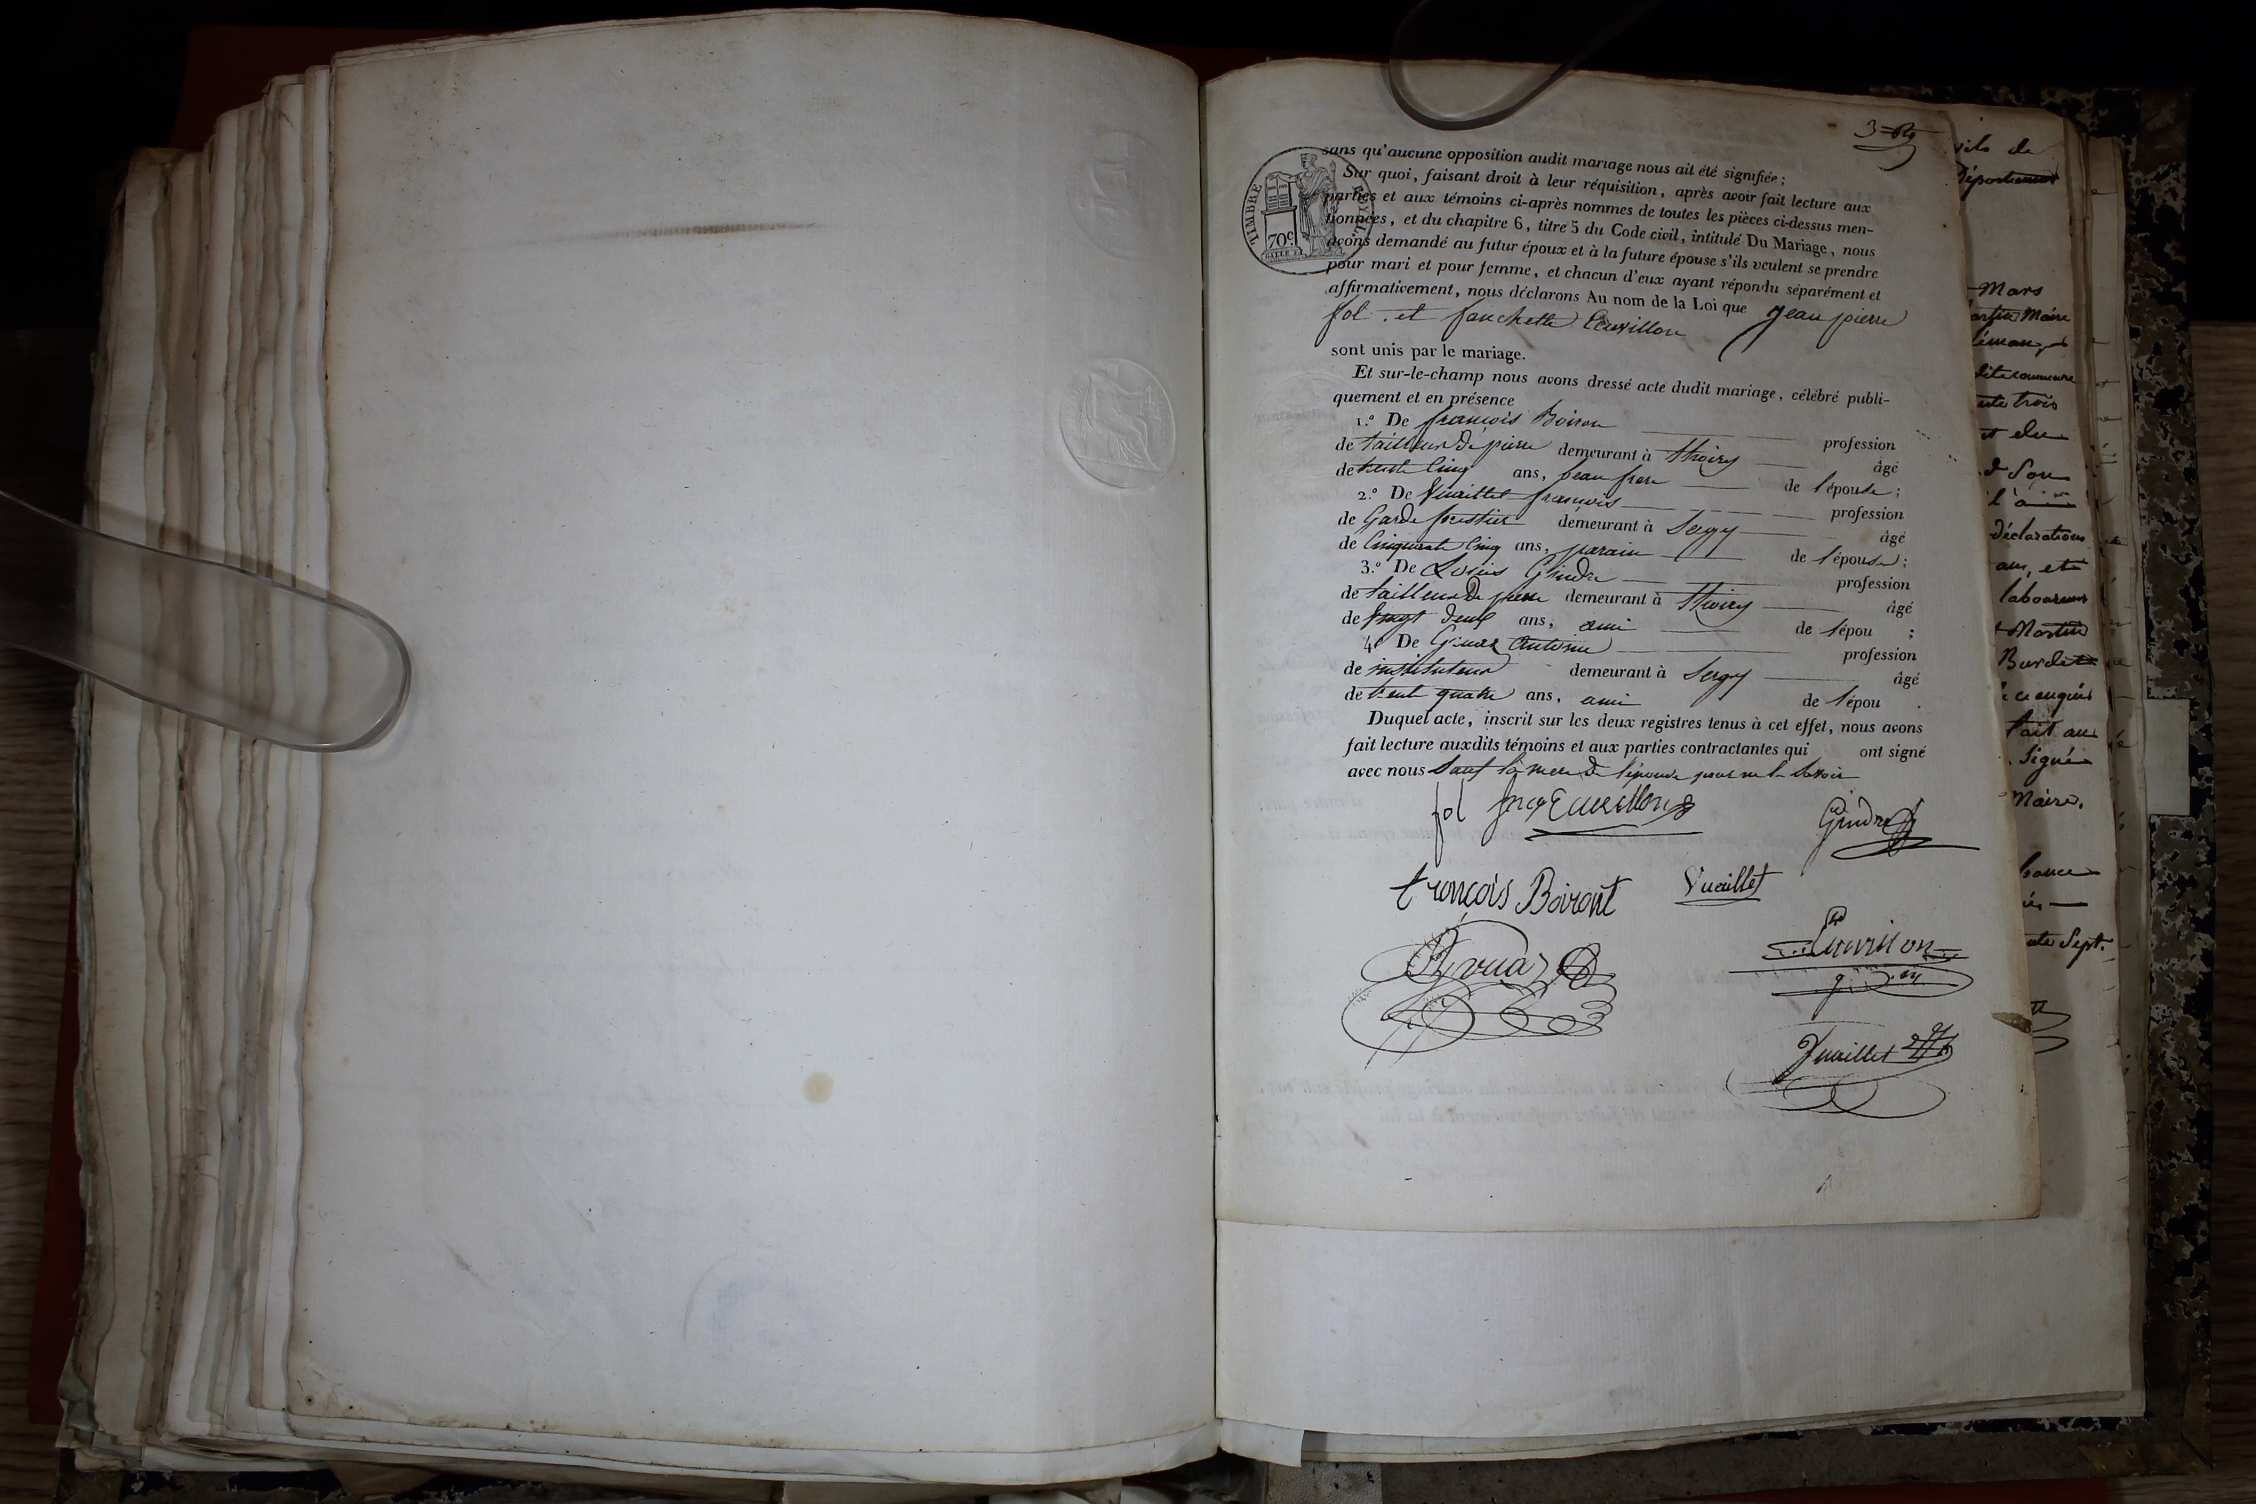 TIMBRE ROYAL
70c
sans qu'aucune opposition audit mariage nous ait été signifiée ;
Sur quoi, faisant droit à leur réquisition, après avoir fait lecture aux
parties et aux témoins ci-après nommés de toutes les pièces ci-dessus men-
tionnées, et du chapitre 6, titre 5 du Code civil, intitulé Du Mariage, nous
avons demandé au futur époux et à la future épouse s'ils veulent se prendre
pour mari et pour femme, et chacun d'eux ayant répondu séparément et
affirmativement, nous déclarons Au nom de la Loi que Jean pierre
fol . et fanchette
sont unis par le mariage.
Et sur-le-champ nous avons dressé acte dudit mariage, célébré publi-
quement et en présence
1.º De françois Boiron profession
de tailleur de pierre demeurant à thoiry âgé
de trente Cinq ans, beau frere de l'épouse ;
2.º De Vuaillet françois profession
de Garde forestier demeurant à Sergy âgé
de Cinquante Cinq ans, parain de l'épouse ;
3.º De Louis Gindre profession
de tailleur de pierre demeurant à thoiry âgé
de Vingt deux ans, ami de l'épou ;
4º De Antoine profession
de instituteur demeurant à Sergy âgé
de trente quatre ans, ami de l'épou .
Duquel acte, inscrit sur les deux registres tenus à cet effet, nous avons
fait lecture auxdits témoins et aux parties contractantes qui ont signé
avec nous Sauf la mere de l'épouse pour ne le Savoir
fol
Gindre
françois Boiront Vuaillet
Vuaillet
Département
Mars
Maire
trois
et du
Son
déclarations
ans, et
laboureur
Martin
Burdet
fait au
Signé
Maire.
Sept.